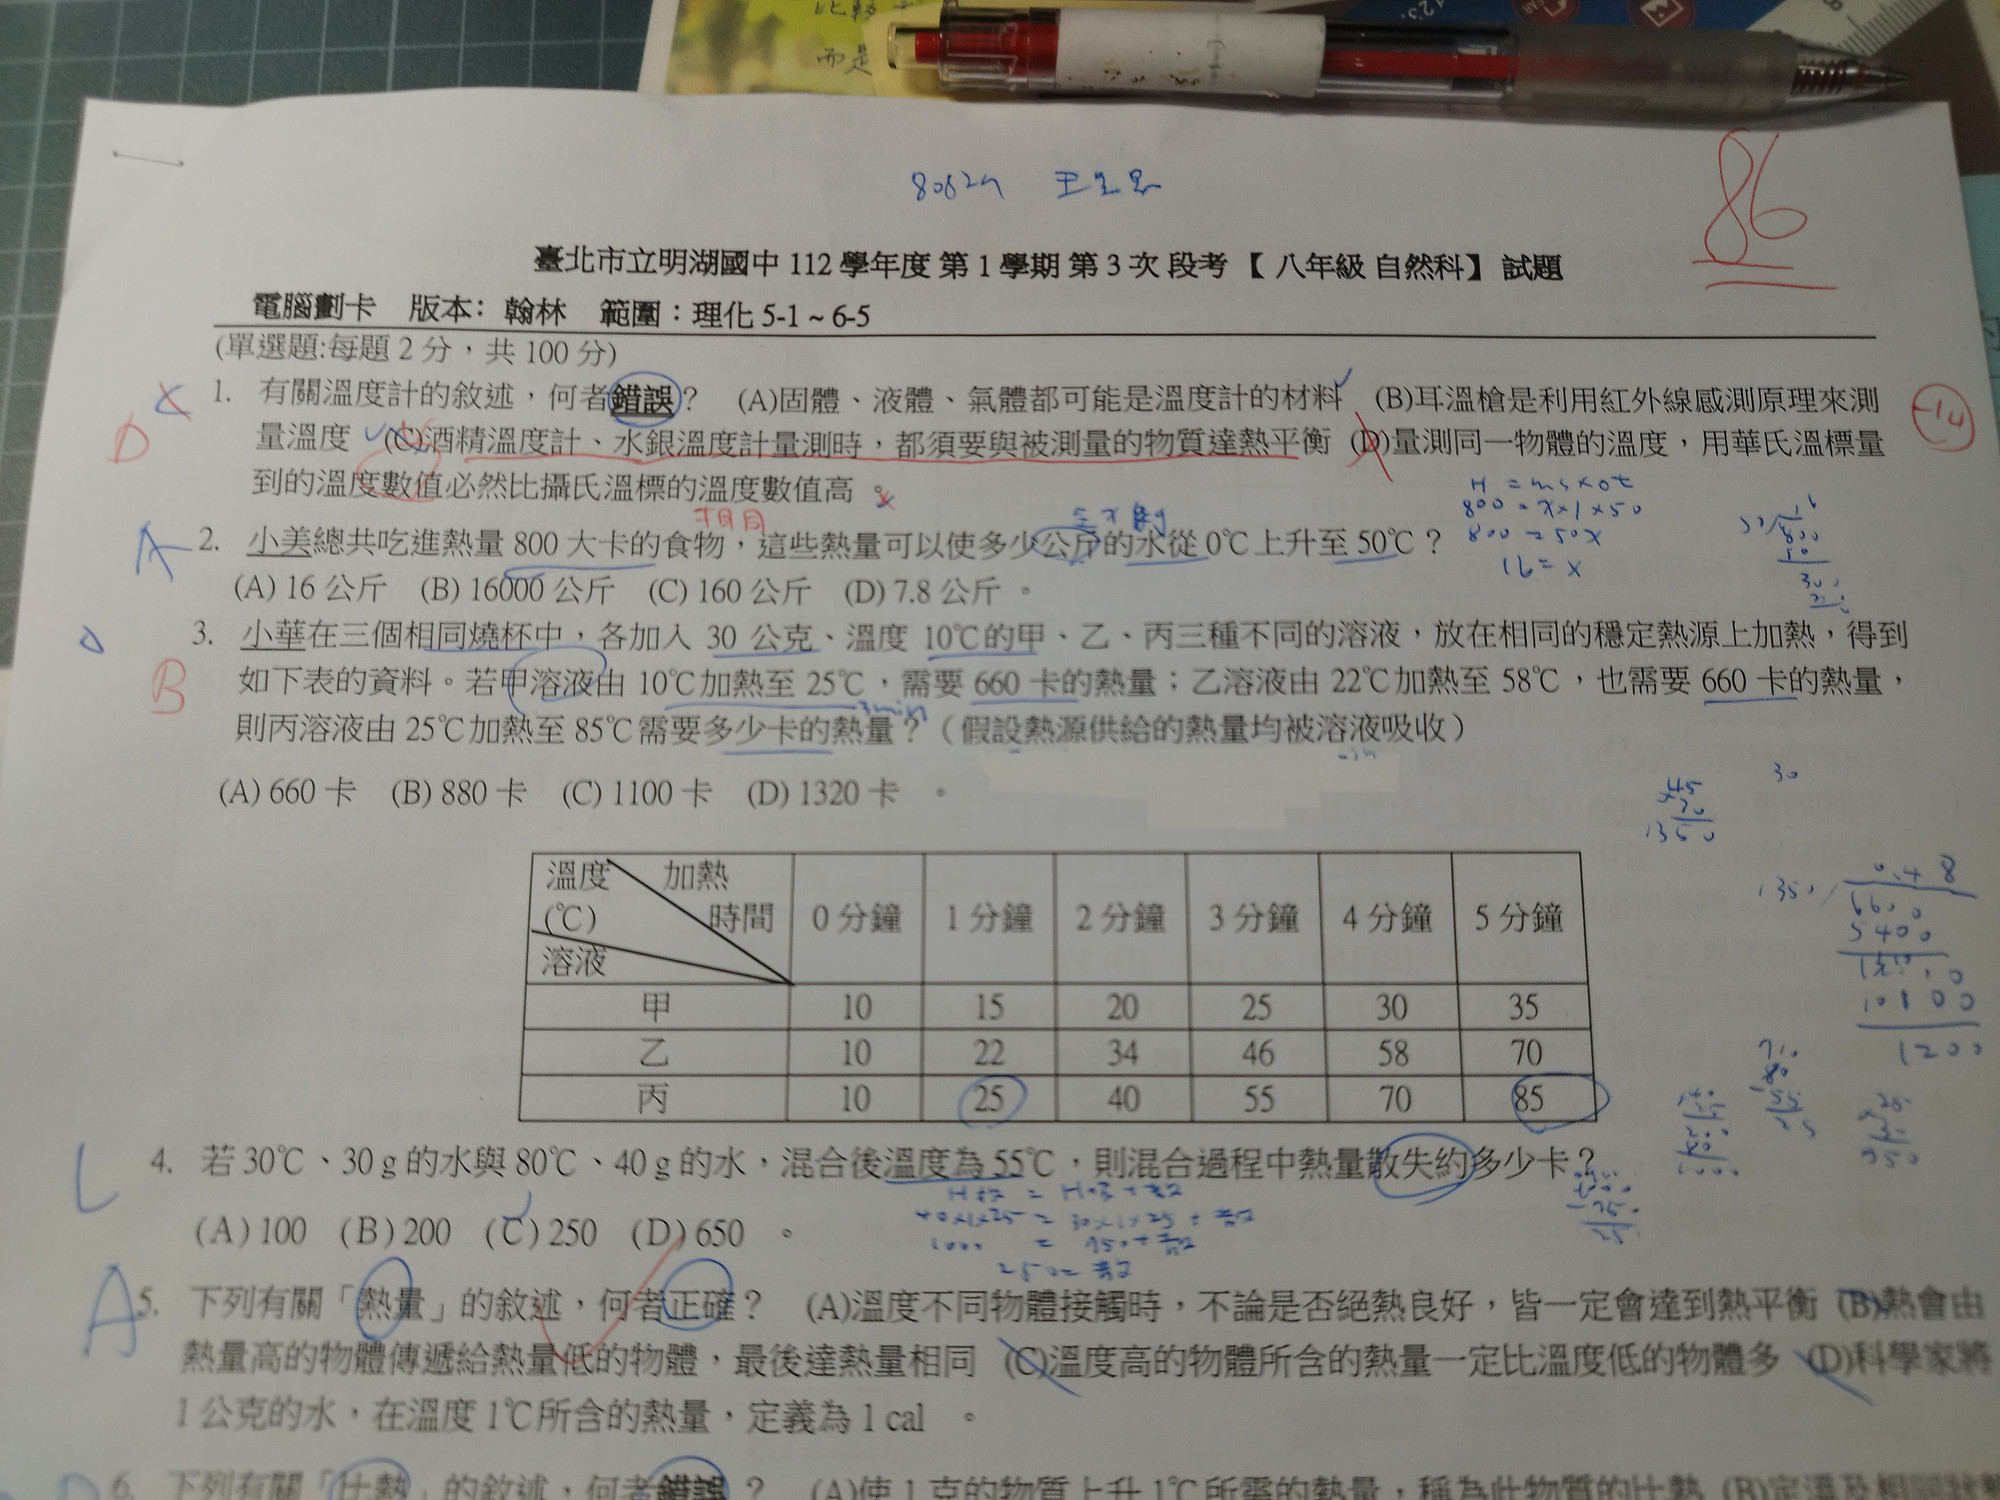 而是
86
臺北市立明湖國中 112 學年度 第 1 學期 第 3 次 段考 【 八年級 自然科】 試題
電腦劃卡 版本: 翰林 範圍：理化 5-1 ~ 6-5
(單選題:每題 2 分，共 100 分)
1. 有關溫度計的敘述，何者錯誤？ (A)固體、液體、氣體都可能是溫度計的材料 (B)耳溫槍是利用紅外線感測原理來測
D
-14
量溫度 (C)酒精溫度計、水銀溫度計量測時，都須要與被測量的物質達熱平衡 (D)量測同一物體的溫度，用華氏溫標量
到的溫度數值必然比攝氏溫標的溫度數值高 。
H = ms×Δt
相同
800 = x×1×50
A
2. 小美總共吃進熱量 800 大卡的食物，這些熱量可以使多少公斤的水從 0℃上升至 50℃？
800 = 50x
16 = x
(A) 16 公斤 (B) 16000 公斤 (C) 160 公斤 (D) 7.8 公斤 。
3. 小華在三個相同燒杯中，各加入 30 公克、溫度 10℃的甲、乙、丙三種不同的溶液，放在相同的穩定熱源上加熱，得到
B
如下表的資料。若甲溶液由 10℃加熱至 25℃，需要 660 卡的熱量；乙溶液由 22℃加熱至 58℃，也需要 660 卡的熱量，
3min
則丙溶液由 25℃加熱至 85℃需要多少卡的熱量？（假設熱源供給的熱量均被溶液吸收）
(A) 660 卡 (B) 880 卡 (C) 1100 卡 (D) 1320 卡 。
30
45
1350
溫度 (℃) 加熱時間 溶液 0 分鐘 1 分鐘 2 分鐘 3 分鐘 4 分鐘 5 分鐘
甲 10 15 20 25 30 35
乙 10 22 34 46 58 70
丙 10 25 40 55 70 85
0.48
1350
6600
5400
10800
1200
4. 若 30℃、30 g 的水與 80℃、40 g 的水，混合後溫度為 55℃，則混合過程中熱量散失約多少卡？
40×1×25 = 30×1×25 + 散
(A) 100 (B) 200 (C) 250 (D) 650 。
1000 = 750 + 散
250 = 散
A
5. 下列有關「熱量」的敘述，何者正確？ (A)溫度不同物體接觸時，不論是否絕熱良好，皆一定會達到熱平衡 (B)熱會由
熱量高的物體傳遞給熱量低的物體，最後達熱量相同 (C)溫度高的物體所含的熱量一定比溫度低的物體多 (D)科學家將
1 公克的水，在溫度 1℃所含的熱量，定義為 1 cal 。
6. 下列有關「比熱」的敘述，何者錯誤？ (A)使 1 克的物質上升 1℃所需的熱量，稱為此物質的比熱 (B)定溫及相同狀